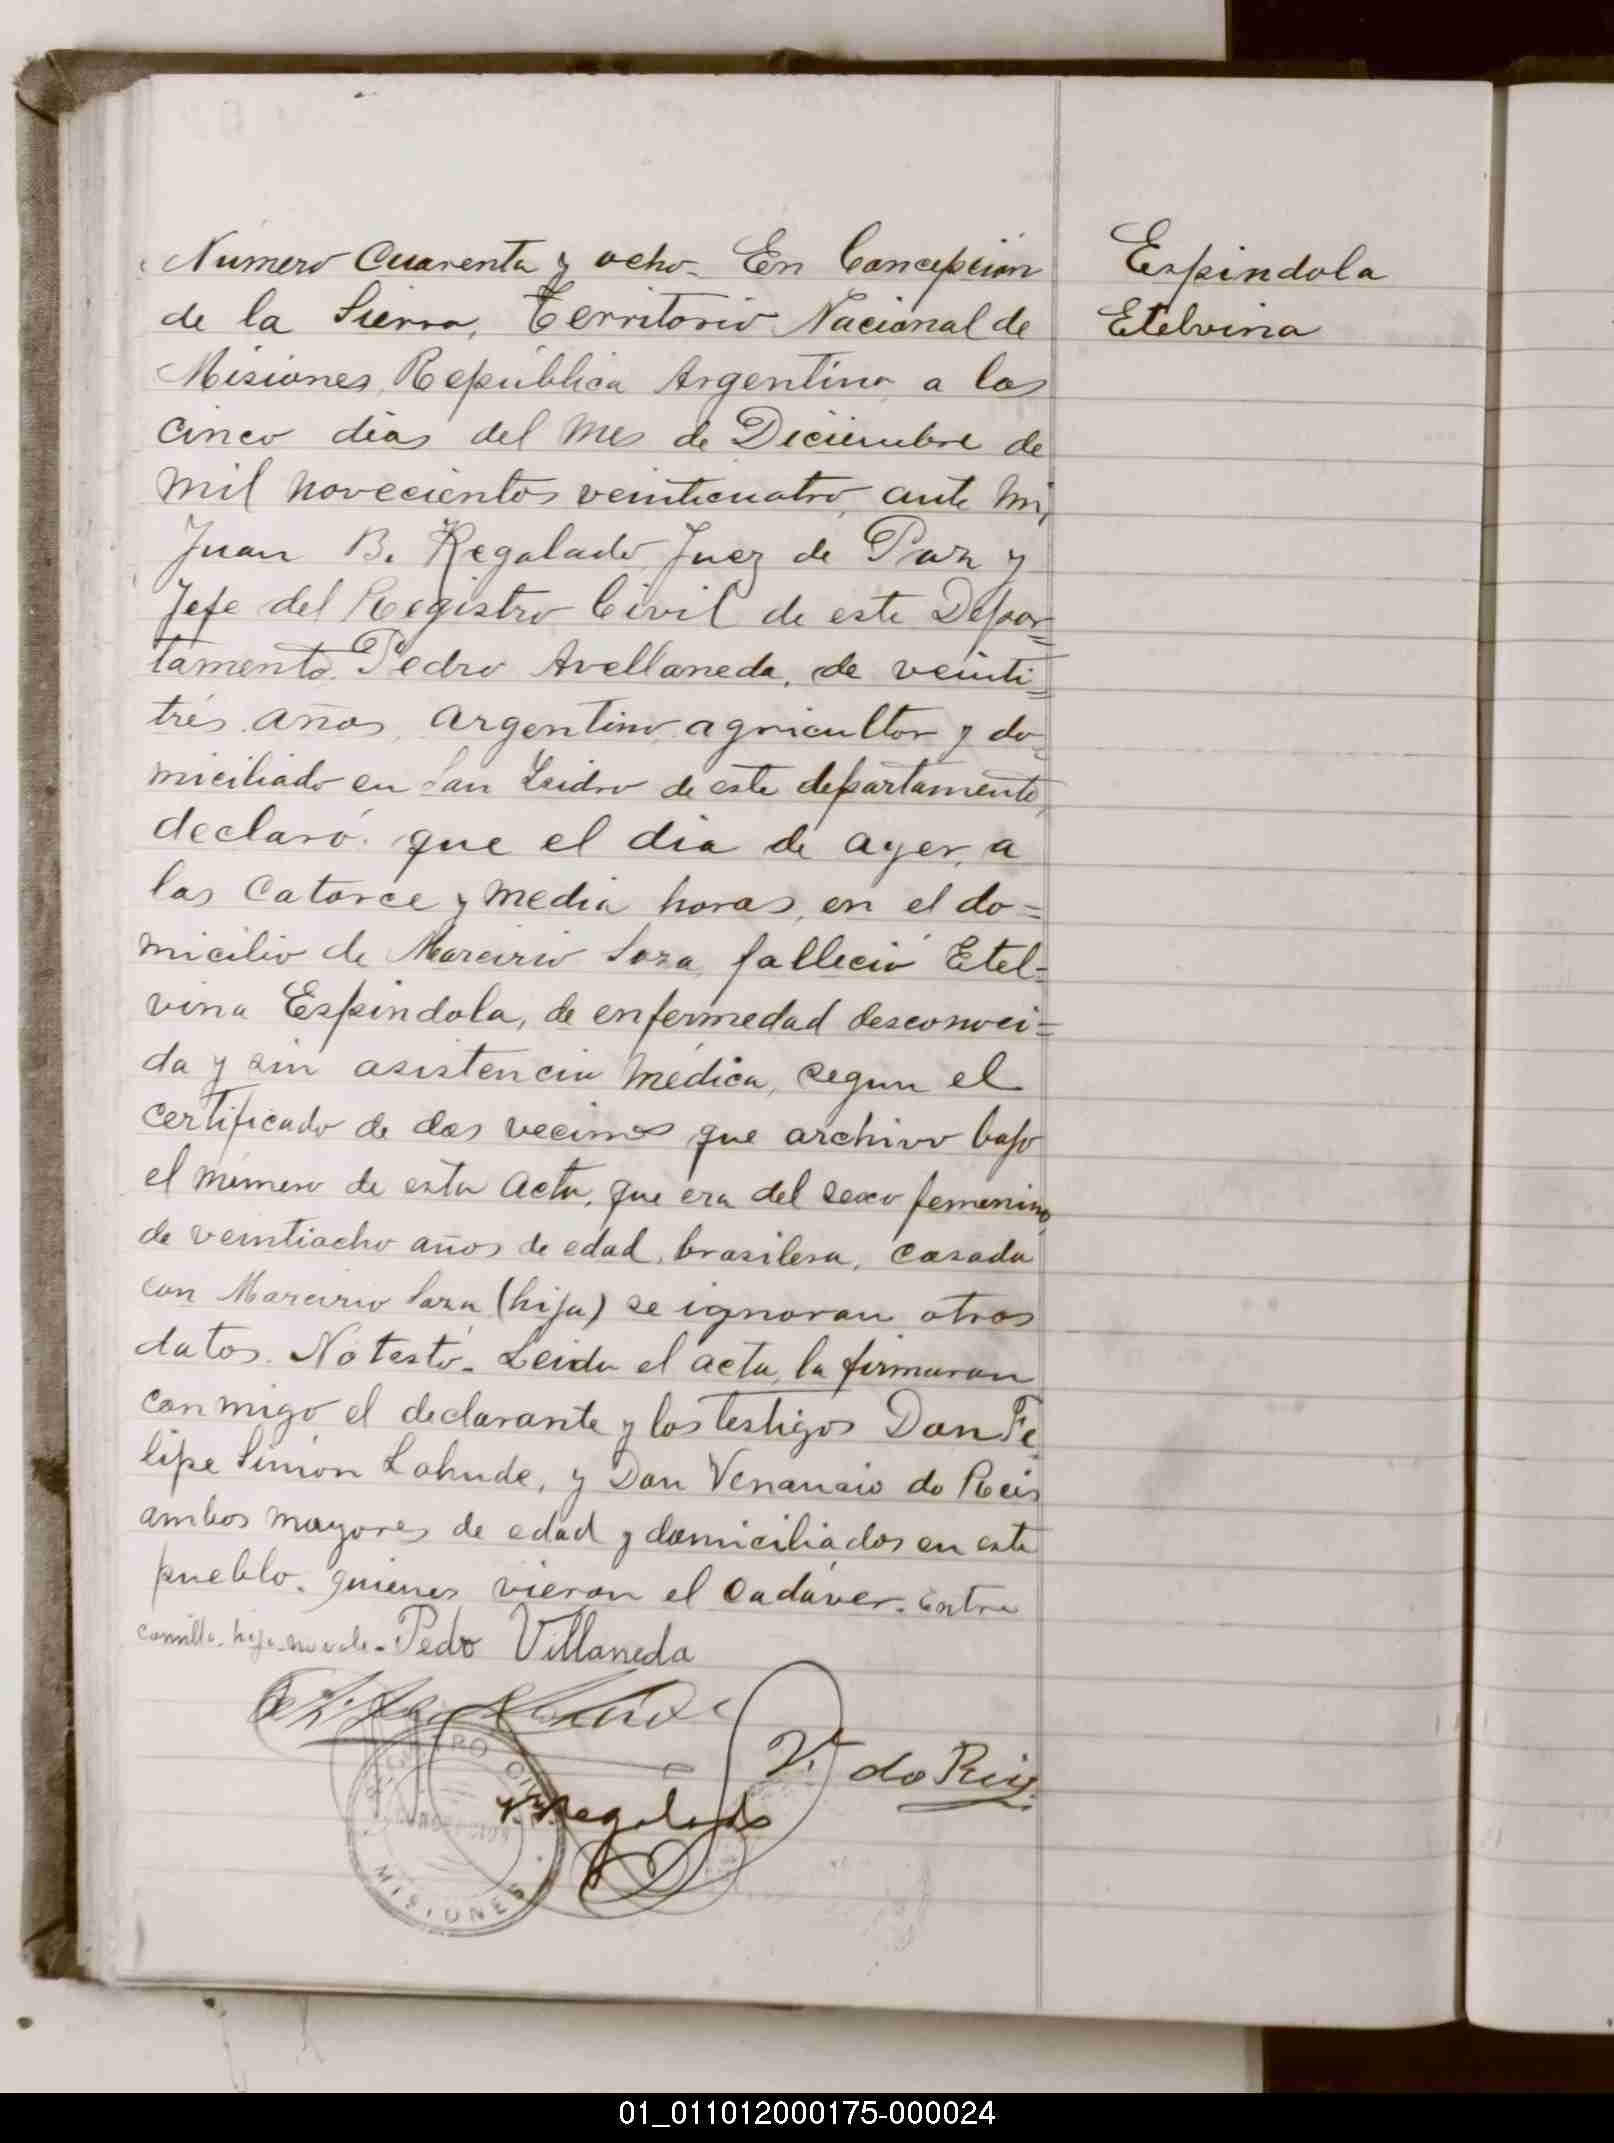 Número Cuarenta y ocho. En Concepción
de la Sierra, Territorio Nacional de
Misiones, República Argentina a los
cinco dias del mes de Diciembre de
mil novecientos veinticuatro, ante mi,
Juan B. Regalado Juez de Paz y
Jefe del Registro Civil de este Depar=
tamento. Pedro Avellaneda, de veinti=
trés años, argentino agricultor y do=
miciliado en San Isidro de este departamento,
declaró: que el dia de ayer, a
las catorce y media horas, en el do=
micilio de Marcirio Soza, falleció Etel=
vina Espindola, de enfermedad desconoci=
da y sin asistencia médica, segun el
certificado de dos vecinos que archivo bajo
el número de esta acta, que era del sexo femenino,
de veintiocho años de edad, brasilera, casada
con Marcirio Soza (hija) se ignoran otros
datos. No testó. Leida el acta, la firmaron
conmigo el declarante y los testigos Don Fe
lipe Simón Lahude, y Don Venancio do Reis
ambos mayores de edad y domiciliados en este
pueblo. quienes vieron el cadáver. Entre
comilla. hija. no vale. Pedro Villaneda
V. do Reis
Regalado
REGISTRO CIVIL
CONCEPCION
MISIONES
Espindola
Etelvina
01_011012000175-000024